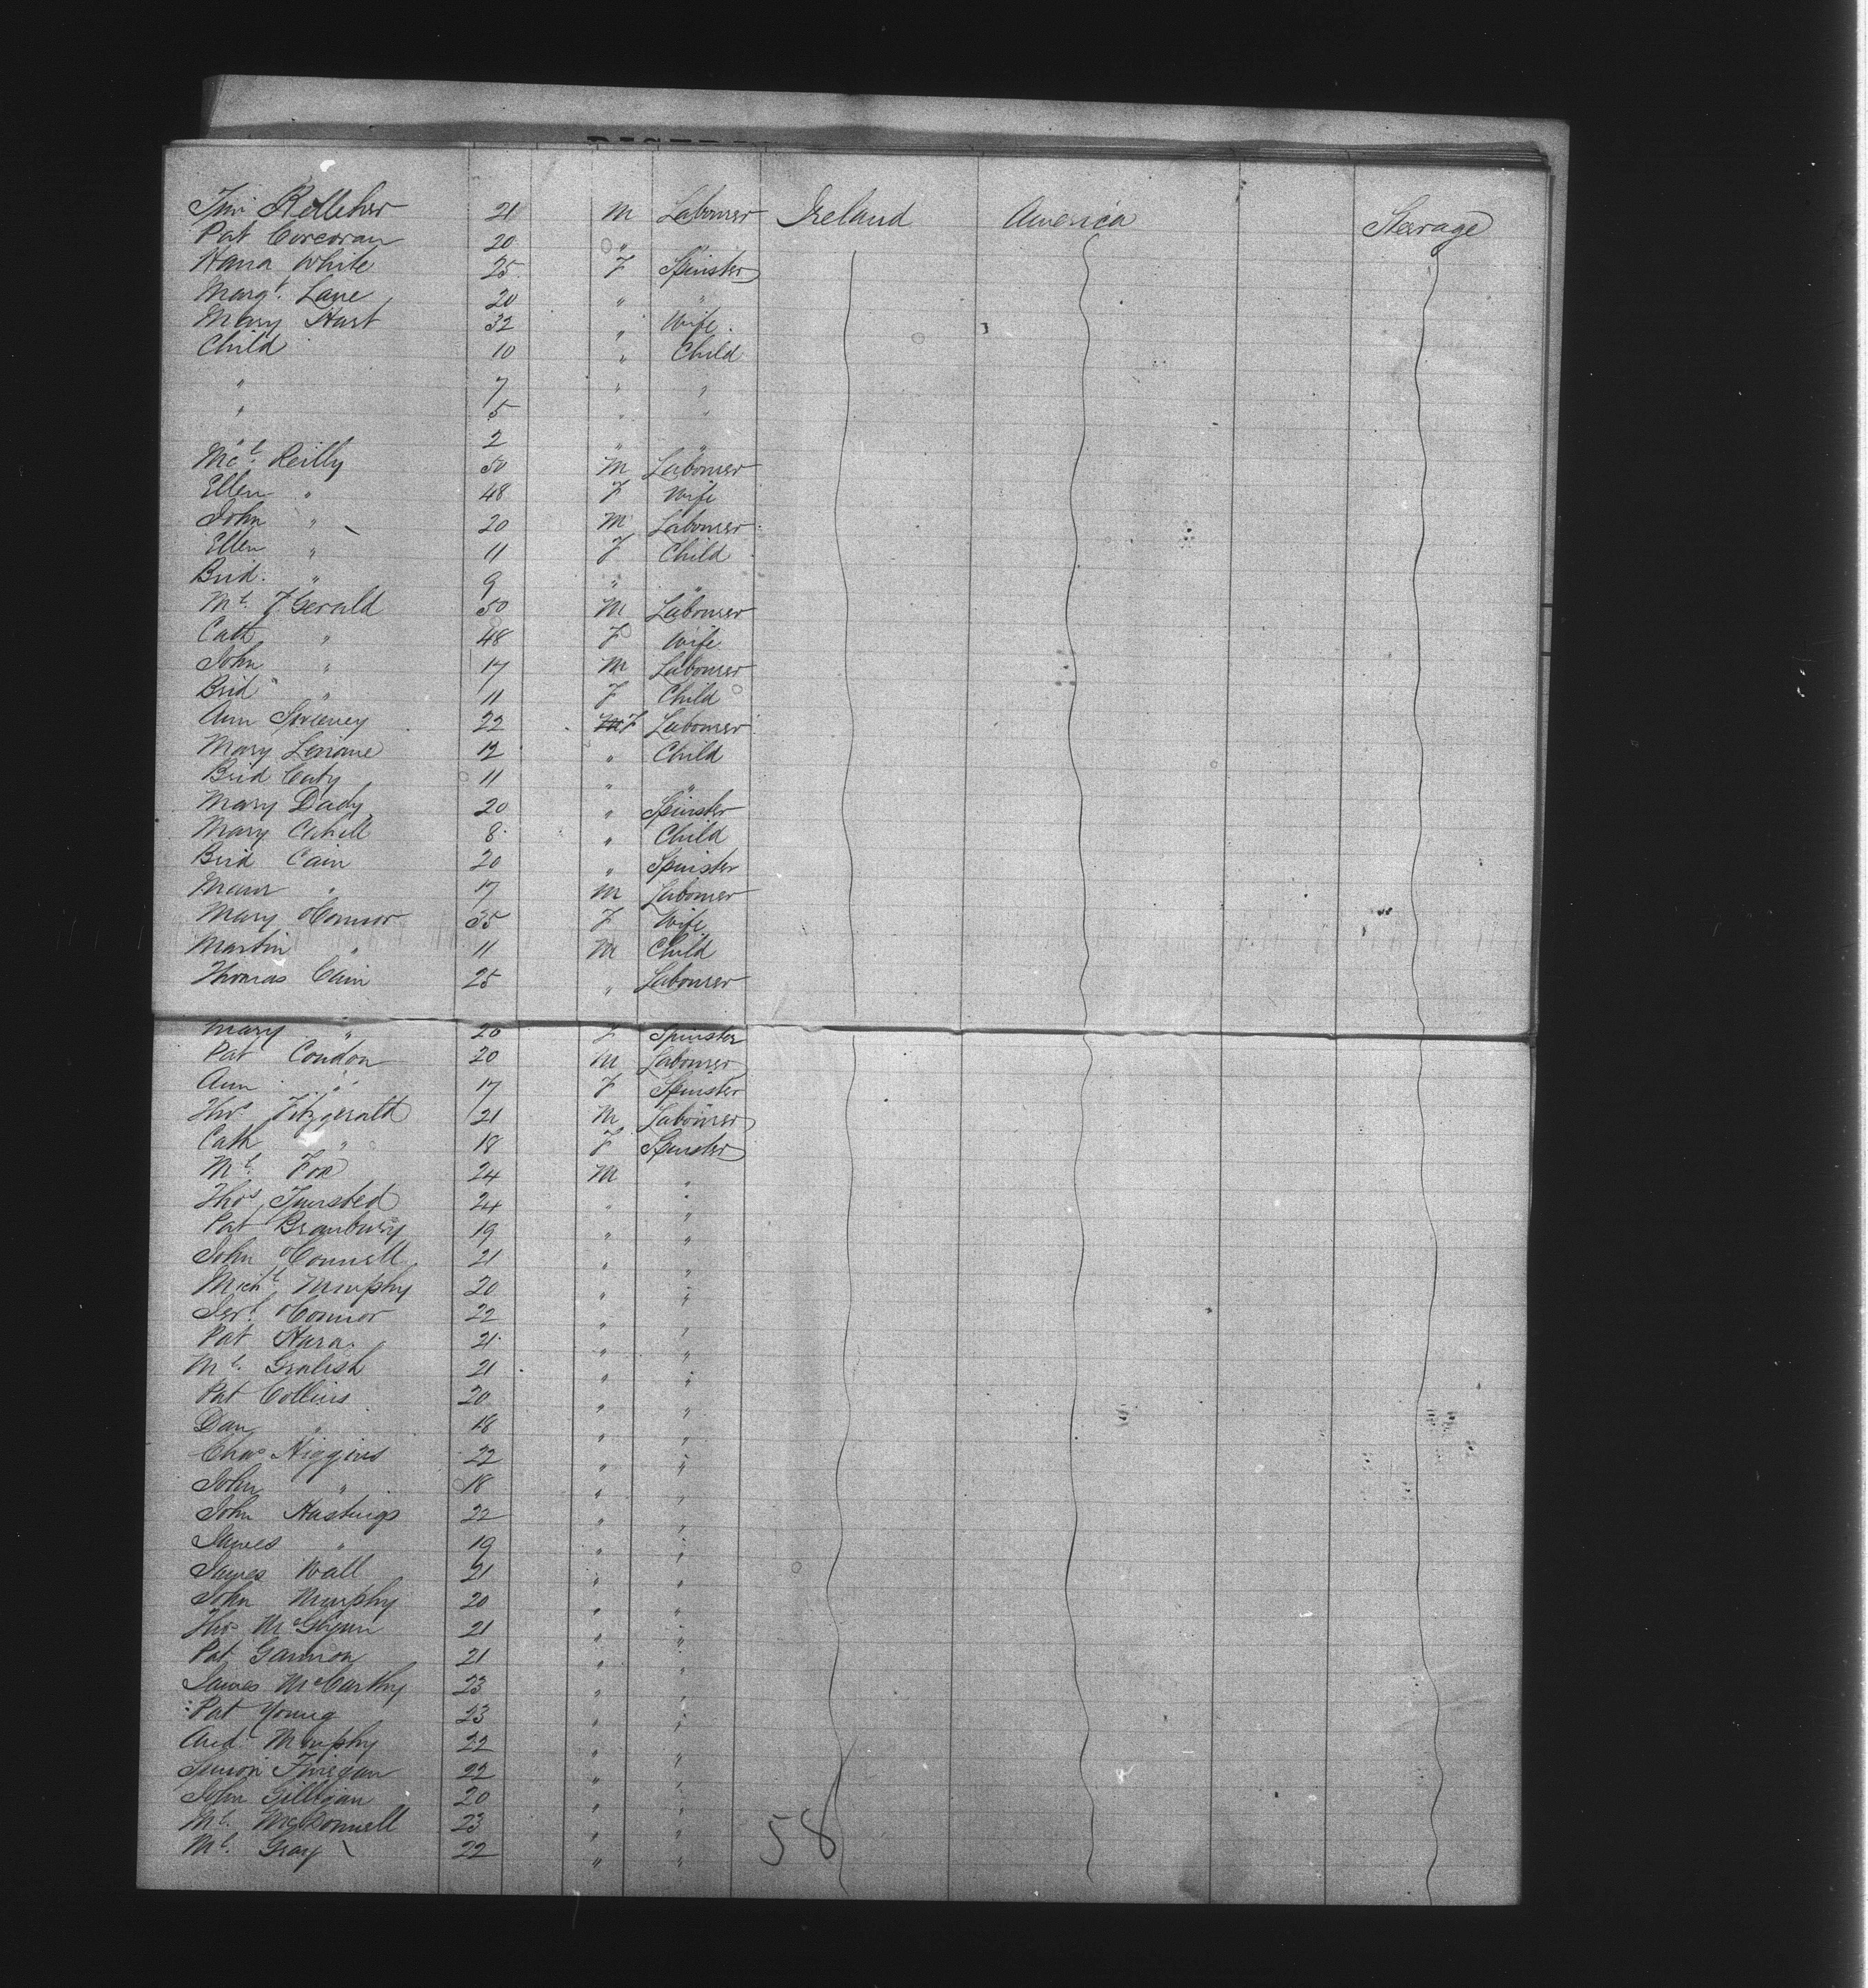 Kelleher 21 M Labourer Ireland America Steerage
Pat Corcoran 20 " "
Hana White 25 F Spinster
Margt. Lane 20 " "
Mary Hart 32 " Wife
Child 10 " Child
" 7 " "
" 5 " "
" 2 " "
Mcl. Reilly 50 M Labourer
Ellen " 48 F Wife
John " 20 M Labourer
Ellen " 11 F Child
Brid. " 9 " "
Ml. FGerald 50 M Labourer
Cath " 48 F Wife
John " 17 M Labourer
Brid " 11 F Child
Ann Sweeney 22 F Labourer
Mary 12 " Child
Brid 11 " "
Mary Dady 20 " Spinster
Mary Cahill 8 " Child
Brid Cain 20 " Spinster
" 17 M Labourer
Mary OConnor 35 F Wife
Martin " 11 M Child
Thomas Cain 25 " Labourer
Mary " 20 F Spinster
Pat Condon 20 M Labourer
Ann " 17 F Spinster
Thos. Fitzgerald 21 M Labourer
Cath " 18 F Spinster
Ml. Fox 24 M "
Thos 24 " "
Pat 19 " "
John OConnell 21 " "
Michl Murphy 20 " "
OConnor 22 " "
Pat Hara 21 " "
Ml. Gralish 21 " "
Pat Collins 20 " "
Dan " 18 " "
Chas Higgins 22 " "
John " 18 " "
John Hastings 22 " "
James " 19 " "
James Wall 21 " "
John Murphy 20 " "
Thos McGlynn 21 " "
Pat Gannon 21 " "
James McCarthy 23 " "
Pat Young 23 " "
And. Murphy 22 " "
Simon Finegan 22 " "
John Gilligan 20 " "
Ml. McDonnell 23 " "
Ml. Gray 22 " "
58